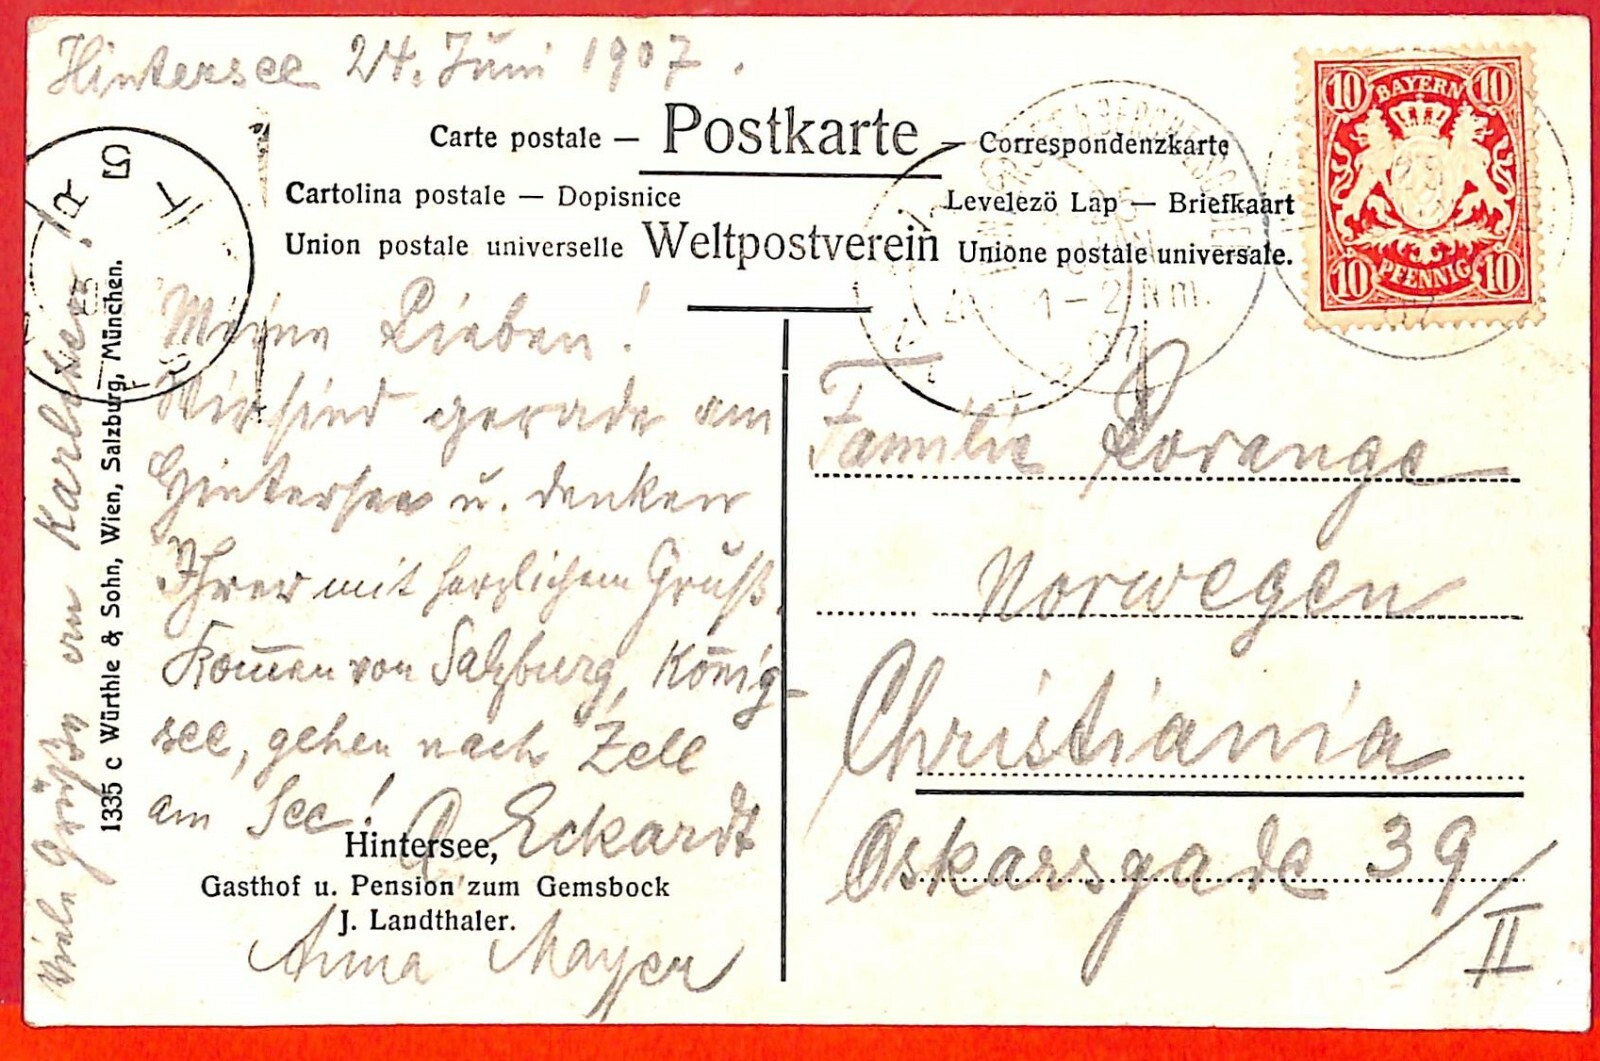 Hintersee 24. Juni 1907.
Carte postale — Postkarte — Correspondenzkarte
Cartolina postale — Dopisnice
Levelezö Lap — Briefkaart
Union postale universelle Weltpostverein Unione postale universale.
BAYERN
10 10
10 PFENNIG 10
1-2 Nm.
07
Meine Lieben!
Wir sind gerade am
Hintersee u. denken
Ihrer mit herzlichem Gruß.
Kom̄en von Salzburg, König-
see, gehen nach Zell
am See!
Eckardt
Hintersee,
Gasthof u. Pension zum Gemsbock
J. Landthaler.
Anna Mayer
Viele Grüße an
1335 c Würthle & Sohn, Wien, Salzburg, München.
Familie Lorange
Norwegen
Christiania
Oskarsgade 39/II